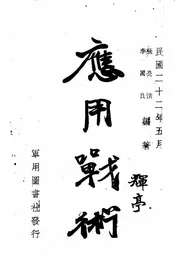 民國二十二年五月
李國良 編著
應用戰術
輝亭
軍用圖書社發行